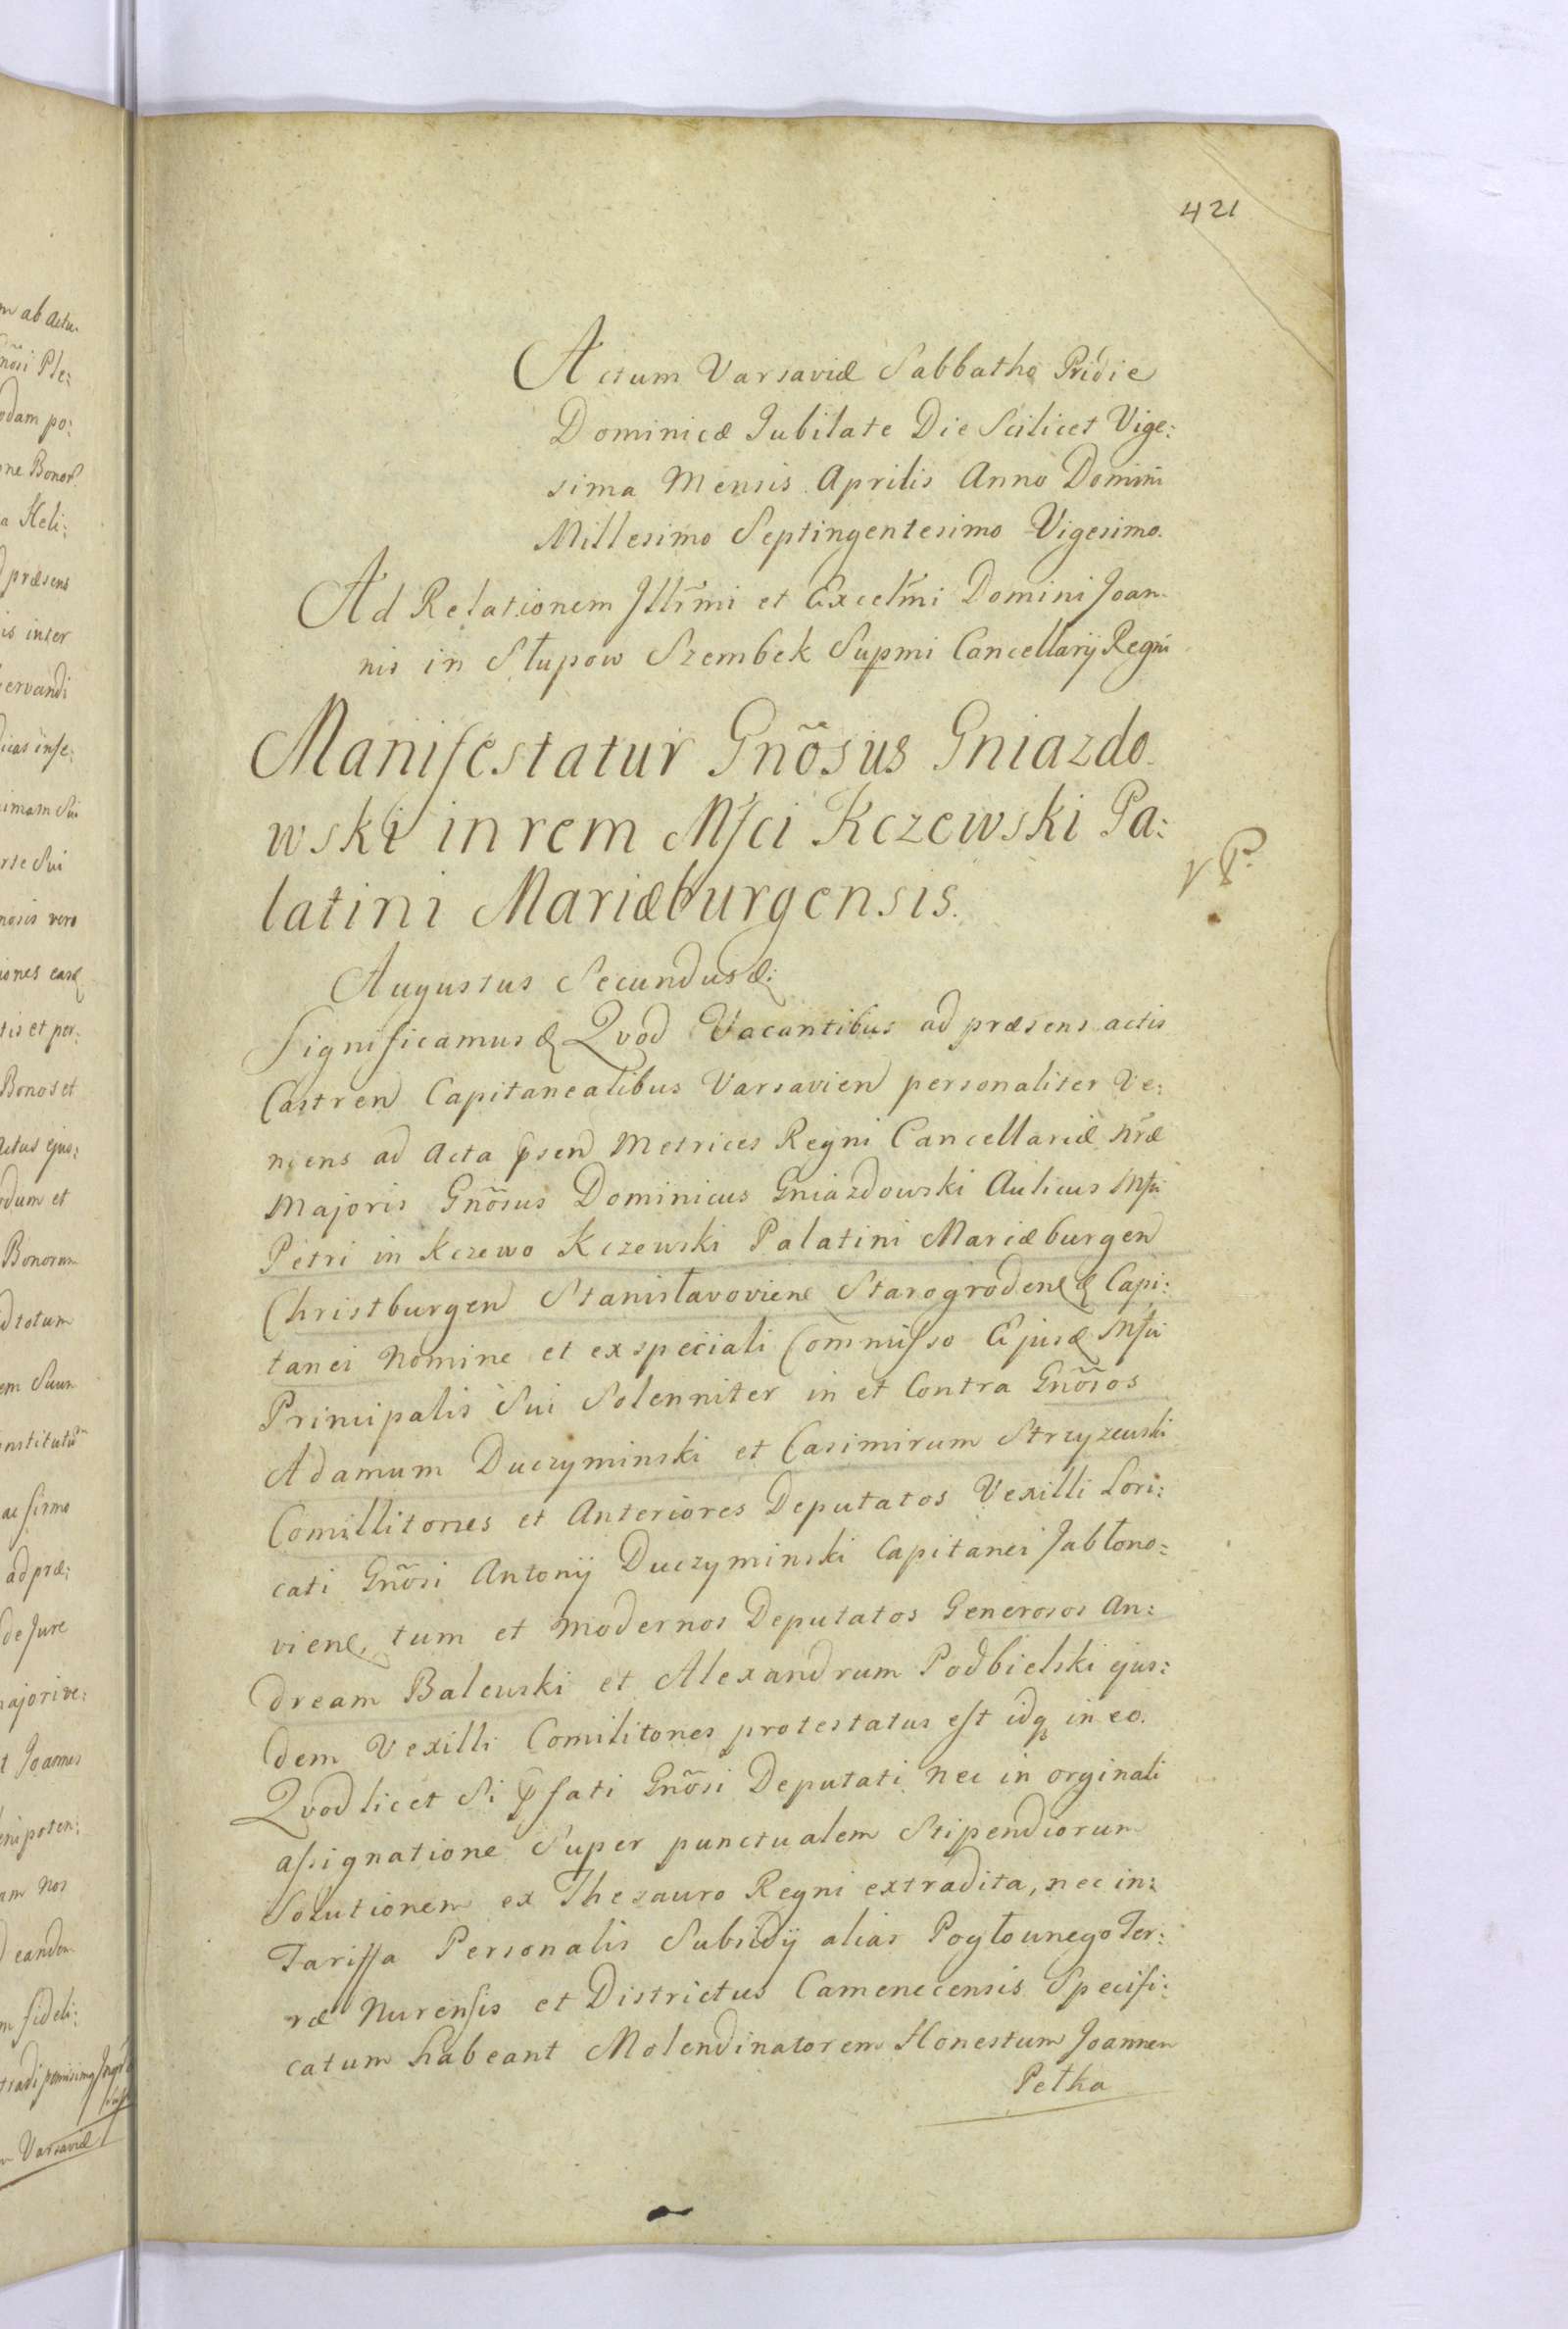 421
Actum Varsaviæ Sabbatho Pridie
Dominicæ Jubilate Die Scilicet Vige:
sima Mensis Aprilis Anno Domini
Millesimo Septingentesimo Vigesimo.
Ad Relationem Jllr̃mi et Excell̃mi Domini Joan
nis in Słupow Szembek Supmi Cancellarij Regni
Manifestatur Gnõsus Gniazdo
wski in rem Mfci Kczewski Pa:
latini Mariæburgensis.
Augustus Secundus &:
Significamus & Qvod Vacantibus ad præsens actis
Castren Capitanealibus Varsavien personaliter Ve:
niens ad Acta p̃sen Metrices Regni Cancellariæ Nr̃æ
Majoris Gnõsus Dominicus Gniazdowski Aulicus Mfci
Petri in Kczewo Kczewski Palatini Mariæburgen
Christburgen Stanisławovien Starogroden & Capi:
tanei Nomine et ex speciali Commisso Ejusd Mfci
Principalis Sui Solenniter in et Contra Gnõsos
Adamum Duczyminski et Casimirum Strzyzewski
Comillitones et Anteriores Deputatos Vexilli Lori:
cati Gnõsi Antonij Duczyminski Capitanei Jabłono=
vien, tum et Modernos Deputatos Generosos An:
dream Balewski et Alexandrum Podbielski ejus:
dem Vexilli Comilitones protestatus est idq in eo.
Qvod licet Si p̃fati Gnõsi Deputati Nec in orginali
assignatione Super punctualem Stipendiorum
Solutionem ex Thesauro Regni extradita, nec in:
Tariffa Personalis Subsidij alias Pogłownego Ter:
ræ Nurensis et Districtus Camenecensis Specifi:
catum habeant Molendinatorem Honestum Joannem
Petka